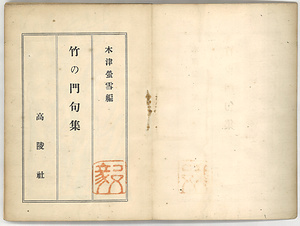 木津蛍雪編
竹の門句集
高陵社